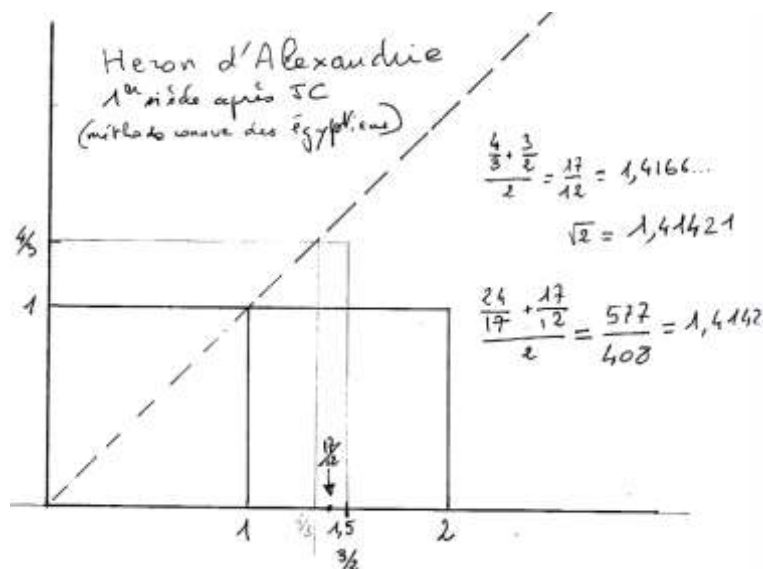 Heron d'Alexandrie
1er siècle après JC
(méthode connue des égyptiens)
(4/3 + 3/2)/2 = 17/12 = 1,4166...
√2 = 1,41421
4/3
1
(24/17 + 17/12)/2 = 577/408 = 1,4142
17/12
1
4/3
1,5
2
3/2